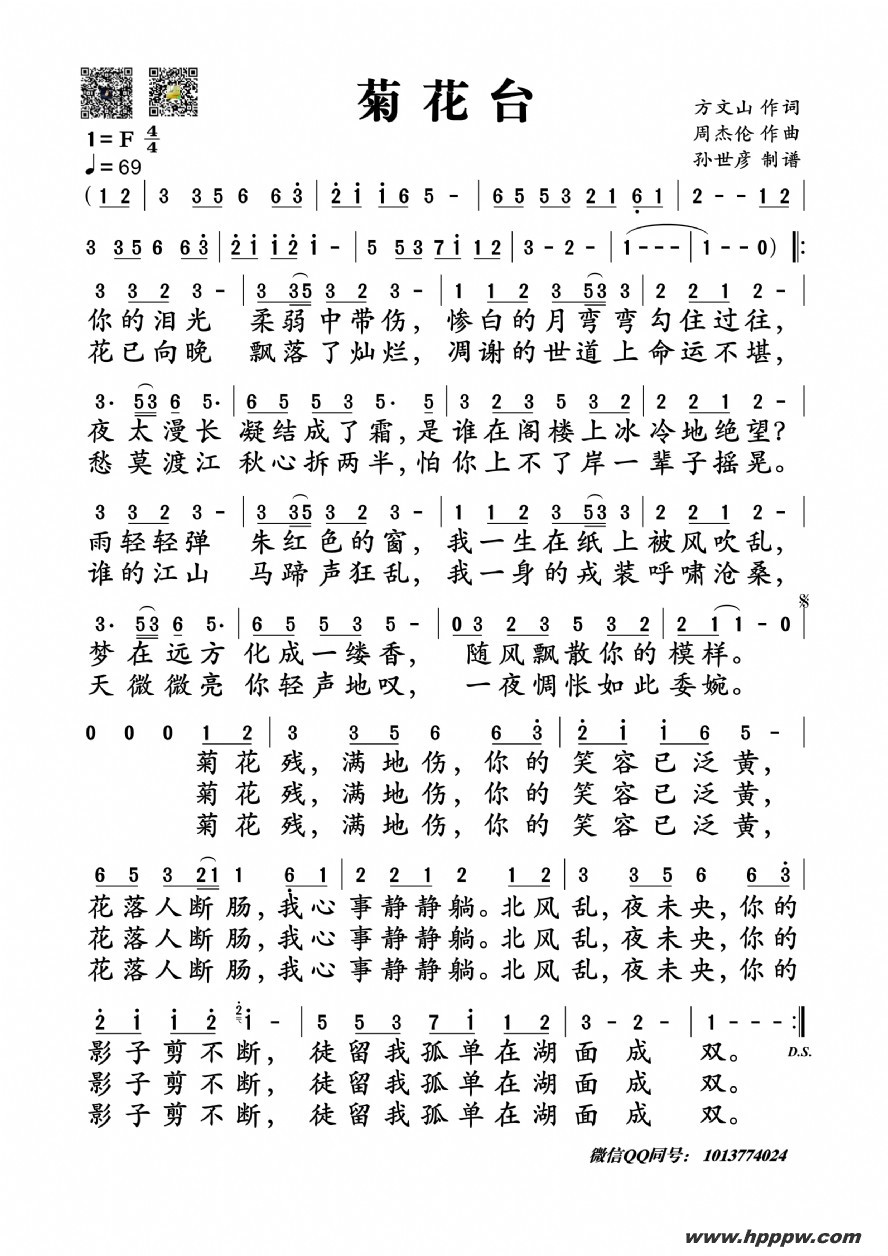 菊花台
方文山 作词
周杰伦 作曲
孙世彦 制谱
1=F 4/4
♩=69
(1 2 | 3 3 5 6 6 3̇ | 2̇ 1̇ 1̇ 6 5 - | 6 5 5 3 2 1 6̣ 1 | 2 - - 1 2 |
3 3 3 5 6 6 3̇ | 2̇ 1̇ 1̇ 2̇ 1̇ - | 5 5 3 7 1̇ 1 2 | 3 - 2 - | 1 - - - | 1 - - 0) ‖:
3 3 2 3 - | 3 3 5 3 2 3 - | 1 1 2 3 5 3 3 | 2 2 1 2 - |
你的泪光 柔弱中带伤，惨白的月弯弯勾住过往，
花已向晚 飘落了灿烂，凋谢的世道上命运不堪，
3· 5 3 6 5· | 6 5 5 3 5· 5 | 3 2 3 5 3 2 | 2 2 1 2 - |
夜太漫长 凝结成了霜，是谁在阁楼上冰冷地绝望？
愁莫渡江 秋心拆两半，怕你上不了岸一辈子摇晃。
3 3 2 3 - | 3 3 5 3 2 3 - | 1 1 2 3 5 3 3 | 2 2 1 2 - |
雨轻轻弹 朱红色的窗，我一生在纸上被风吹乱，
谁的江山 马蹄声狂乱，我一身的戎装呼啸沧桑，
3· 5 3 6 5· | 6 5 5 3 5 - | 0 3 2 3 5 3 2 | 2 1 1 - 0 |
梦在远方 化成一缕香， 随风飘散你的模样。
天微微亮 你轻声地叹， 一夜惆怅如此委婉。
0 0 0 1 2 | 3 3 5 6 6 3̇ | 2̇ 1̇ 1̇ 6 5 - |
菊花残，满地伤，你的笑容已泛黄，
菊花残，满地伤，你的笑容已泛黄，
菊花残，满地伤，你的笑容已泛黄，
6 5 3 2 1 1 6̣ 1 | 2 2 1 2 1 2 | 3 3 5 6 6 3̇ |
花落人断肠，我心事静静躺。北风乱，夜未央，你的
花落人断肠，我心事静静躺。北风乱，夜未央，你的
花落人断肠，我心事静静躺。北风乱，夜未央，你的
2̇ 1̇ 1̇ 2̇ 2̇ 1̇ - | 5 5 3 7 1̇ 1 2 | 3 - 2 - | 1 - - - :‖
影子剪不断，徒留我孤单在湖面成 双。
D.S.
影子剪不断，徒留我孤单在湖面成 双。
影子剪不断，徒留我孤单在湖面成 双。
微信QQ同号： 1013774024
www.hpppw.com